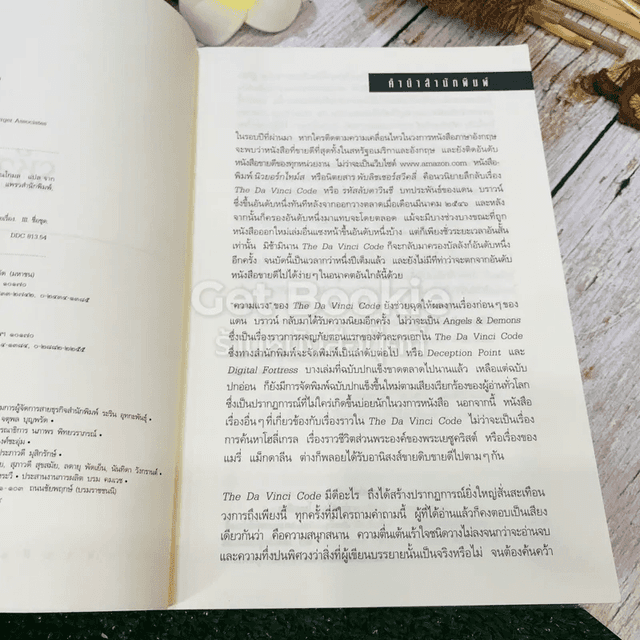 Associates
DDC 813.54
คำนำสำนักพิมพ์
ในรอบปีที่ผ่านมา หากใครติดตามความเคลื่อนไหวในวงการหนังสือภาษาอังกฤษ
จะพบว่าหนังสือที่ขายดีที่สุดทั้งในสหรัฐอเมริกาและอังกฤษ และยังติดอันดับ
หนังสือขายดีของทุกหน่วยงาน ไม่ว่าจะเป็นเว็บไซต์ www.amazon.com หนังสือ-
พิมพ์ นิวยอร์กไทมส์ หรือนิตยสาร พับลิชเชอร์สวีคลี่ คือนวนิยายลึกลับเรื่อง
The Da Vinci Code หรือ รหัสลับดาวินชี บทประพันธ์ของแดน บราวน์
ซึ่งขึ้นอันดับหนึ่งทันทีหลังจากออกวางตลาดเมื่อเดือนมีนาคม ๒๕๔๖ และหลัง
จากนั้นก็ครองอันดับหนึ่งมาแทบจะโดยตลอด แม้จะมีบางช่วงบางขณะที่ถูก
หนังสือออกใหม่เล่มอื่นแซงหน้าขึ้นอันดับหนึ่งบ้าง แต่ก็เพียงชั่วระยะเวลาอันสั้น
เท่านั้น มิช้ามินาน The Da Vinci Code ก็จะกลับมาครองบัลลังก์อันดับหนึ่ง
อีกครั้ง จนบัดนี้เป็นเวลากว่าหนึ่งปีเต็มแล้ว และยังไม่มีทีท่าว่าจะตกจากอันดับ
หนังสือขายดีไปได้ง่ายๆ ในอนาคตอันใกล้นี้ด้วย
"ความแรง" ของ The Da Vinci Code ยังช่วยฉุดให้ผลงานเรื่องก่อนๆ ของ
แดน บราวน์ กลับมาได้รับความนิยมอีกครั้ง ไม่ว่าจะเป็น Angels & Demons
ซึ่งเป็นเรื่องราวการผจญภัยครั้งแรกของตัวละครเอกใน The Da Vinci Code
ซึ่งทางสำนักพิมพ์จะจัดพิมพ์เป็นลำดับต่อไป หรือ Deception Point และ
Digital Fortress บางเล่มที่ฉบับปกแข็งขาดตลาดไปนานแล้ว เหลือแต่ฉบับ
ปกอ่อน ก็ยังมีการจัดพิมพ์ฉบับปกแข็งขึ้นใหม่ตามเสียงเรียกร้องของผู้อ่านทั่วโลก
ซึ่งเป็นปรากฏการณ์ที่ไม่ใคร่เกิดขึ้นบ่อยนักในวงการหนังสือ นอกจากนี้ หนังสือ
เรื่องอื่นๆ ที่เกี่ยวข้องกับเรื่องราวใน The Da Vinci Code ไม่ว่าจะเป็นเรื่อง
การค้นหาโฮลี่เกรล เรื่องราวชีวิตส่วนพระองค์ของพระเยซูคริสต์ หรือเรื่องของ
แมรี่ แม็กดาลีน ต่างก็พลอยได้รับอานิสงส์ขายดิบขายดีไปตามๆ กัน
The Da Vinci Code มีดีอะไร ถึงได้สร้างปรากฏการณ์ยิ่งใหญ่สั่นสะเทือน
วงการถึงเพียงนี้ ทุกครั้งที่มีใครถามคำถามนี้ ผู้ที่ได้อ่านแล้วก็คงตอบเป็นเสียง
เดียวกันว่า คือความสนุกสนาน ความตื่นเต้นเร้าใจชนิดวางไม่ลงจนกว่าจะอ่านจบ
และความทึ่งปนพิศวงว่าสิ่งที่ผู้เขียนบรรยายนั้นเป็นจริงหรือไม่ จนต้องค้นคว้า
Get Bookie